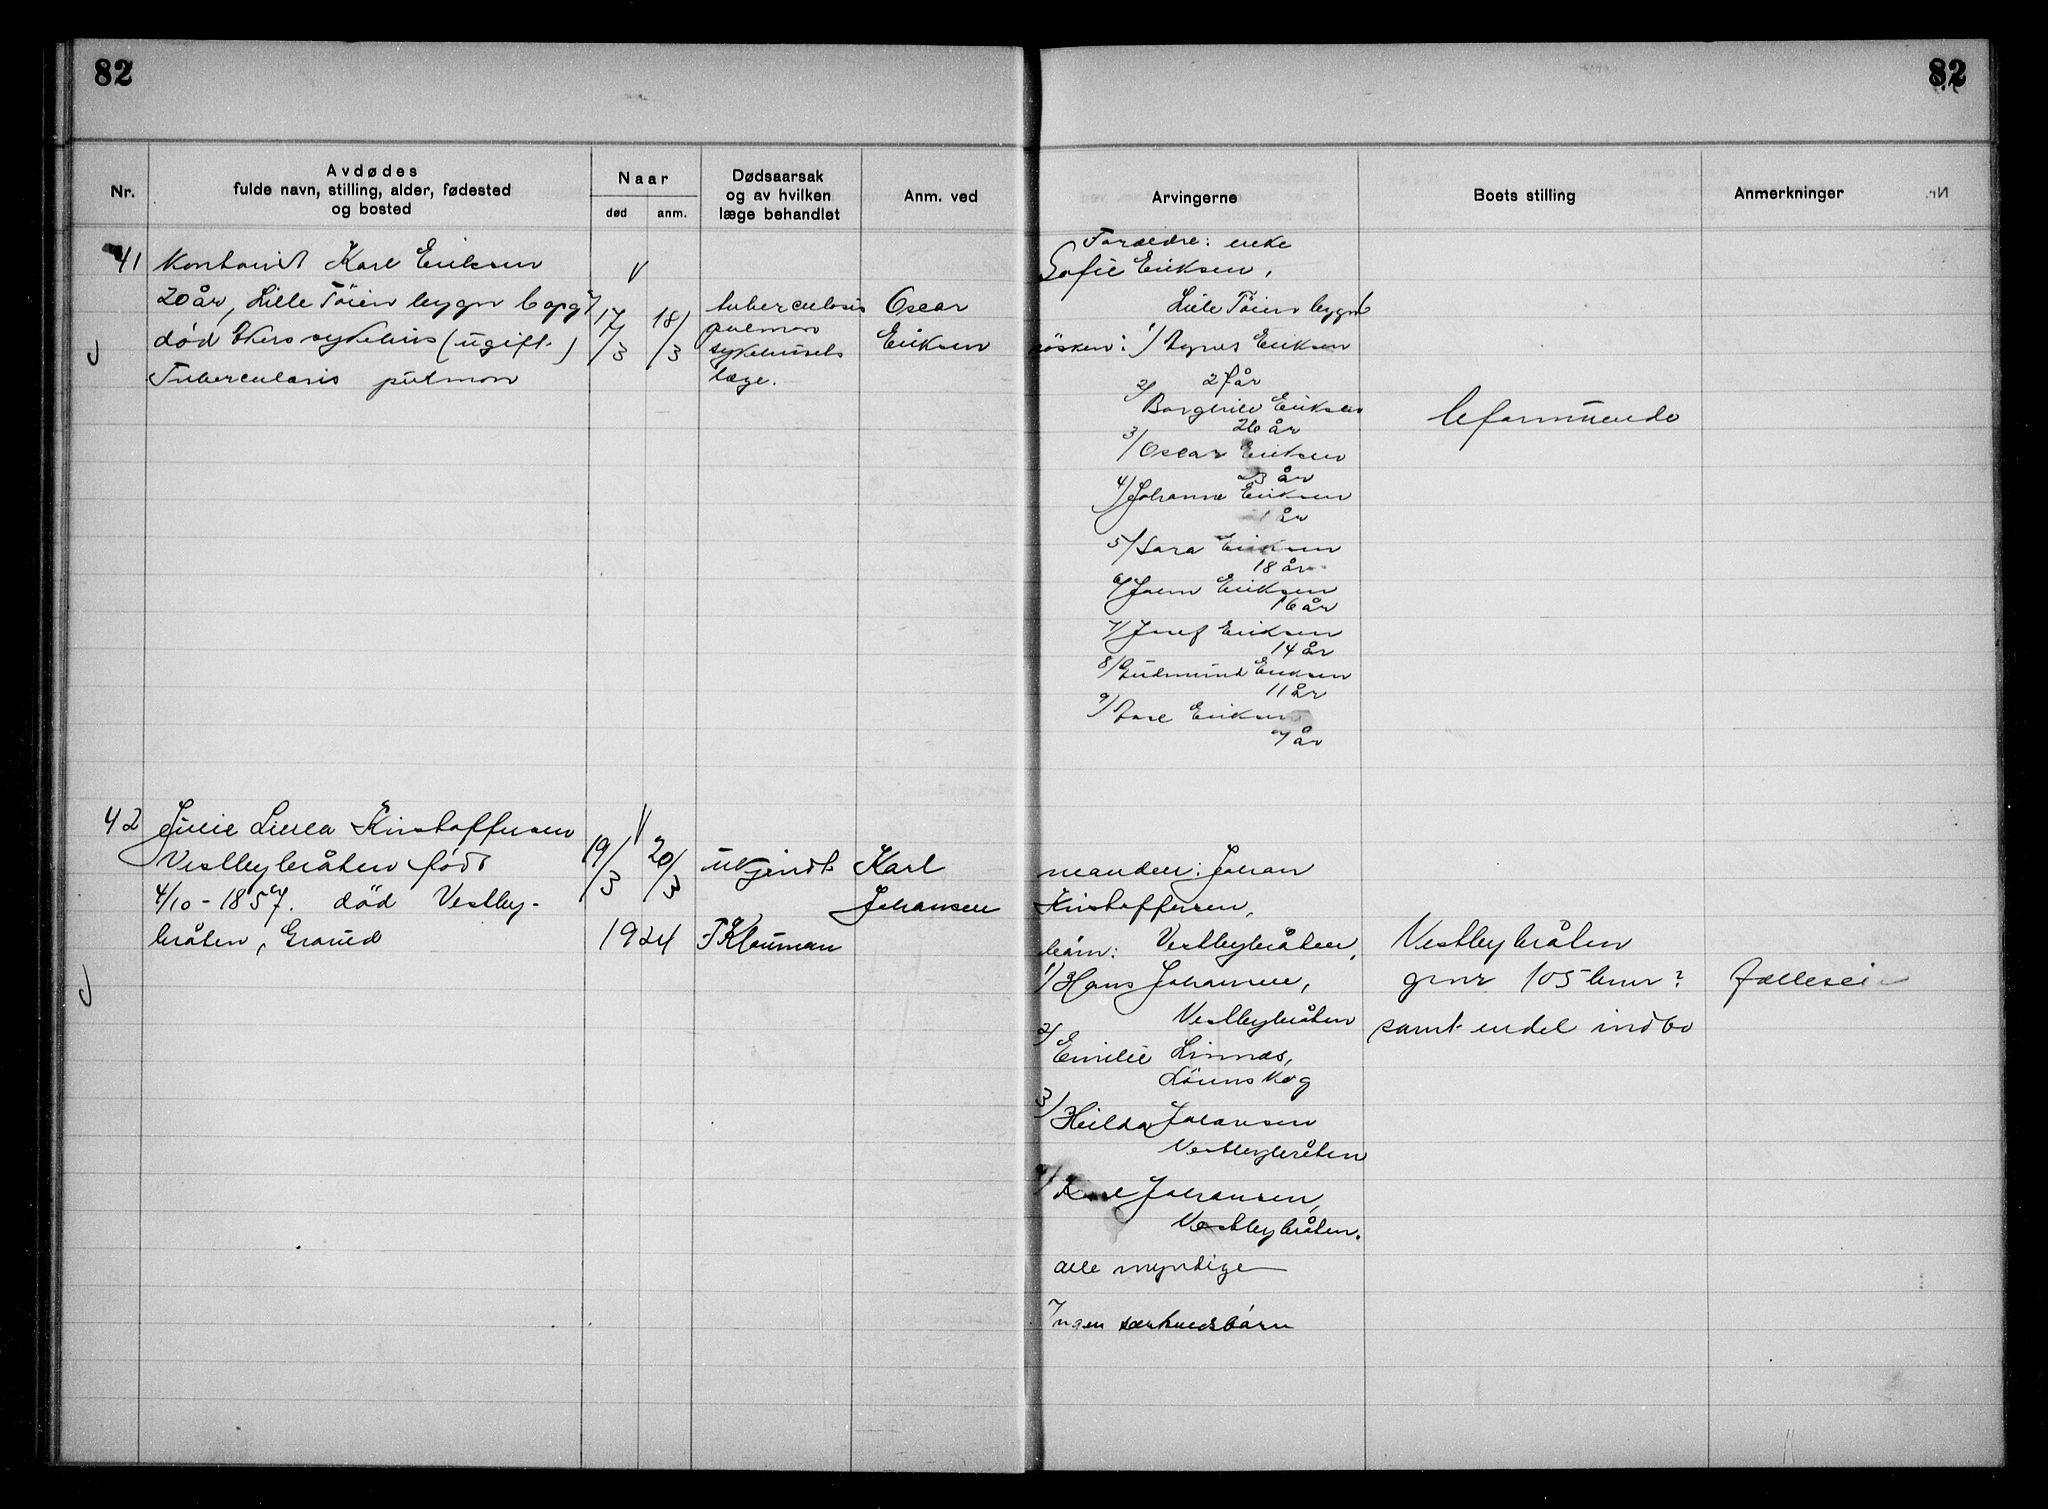 82
82
Nr.
Avdødes
fulde navn, stilling, alder, fødested
og bosted
Naar
død
anm.
Dødsaarsak
og av hvilken
læge behandlet
Anm. ved
Arvingerne
Boets stilling
Anmerkninger
41
Kontorist Karl Eriksen
20 år, Lille Töien bygn 6 opg
død Akers sykehus (ugift.)
Tuberculosis pulmon
17/3
18/3
tuberculosis
pulmon
sykehusets
læge.
Oscar
Eriksen
Forældre: enke
Sofie Eriksen,
Lille Töien bygn 6
søsken: 1/ Agnes Eriksen
27 år
2/ Borghild Eriksen
26 år
3/ Oscar Eriksen
23 år
4/ Johanne Eriksen
år
5/ Sara Eriksen
18 år
6/ John Eriksen
16 år
7/ Josef Eriksen
14 år
8/ Gudmund Eriksen
11 år
9/ Aase Eriksen
7 år
Uformuende
42
Julie Linea Kristoffersen
Vestbybråten født
4/10 - 1857. død Vestby-
bråten, Grorud
19/3
20/3
1924
ukjendt
T Klouman
Karl
Johansen
manden: Johan
Kristoffersen,
børn: Vestbybråten,
1/ Hans Johansen,
Vestbybråten
2/ Emilie Linnæs,
Lörenskog
3/ Hilda Johansen
Vestbybråten
4/ Karl Johansen,
Vestbybråten.
alle myndige
Ingen særkuldsbørn
Vestbybråten
gnr 105 bnr ?
samt endel indbo
fælleseie